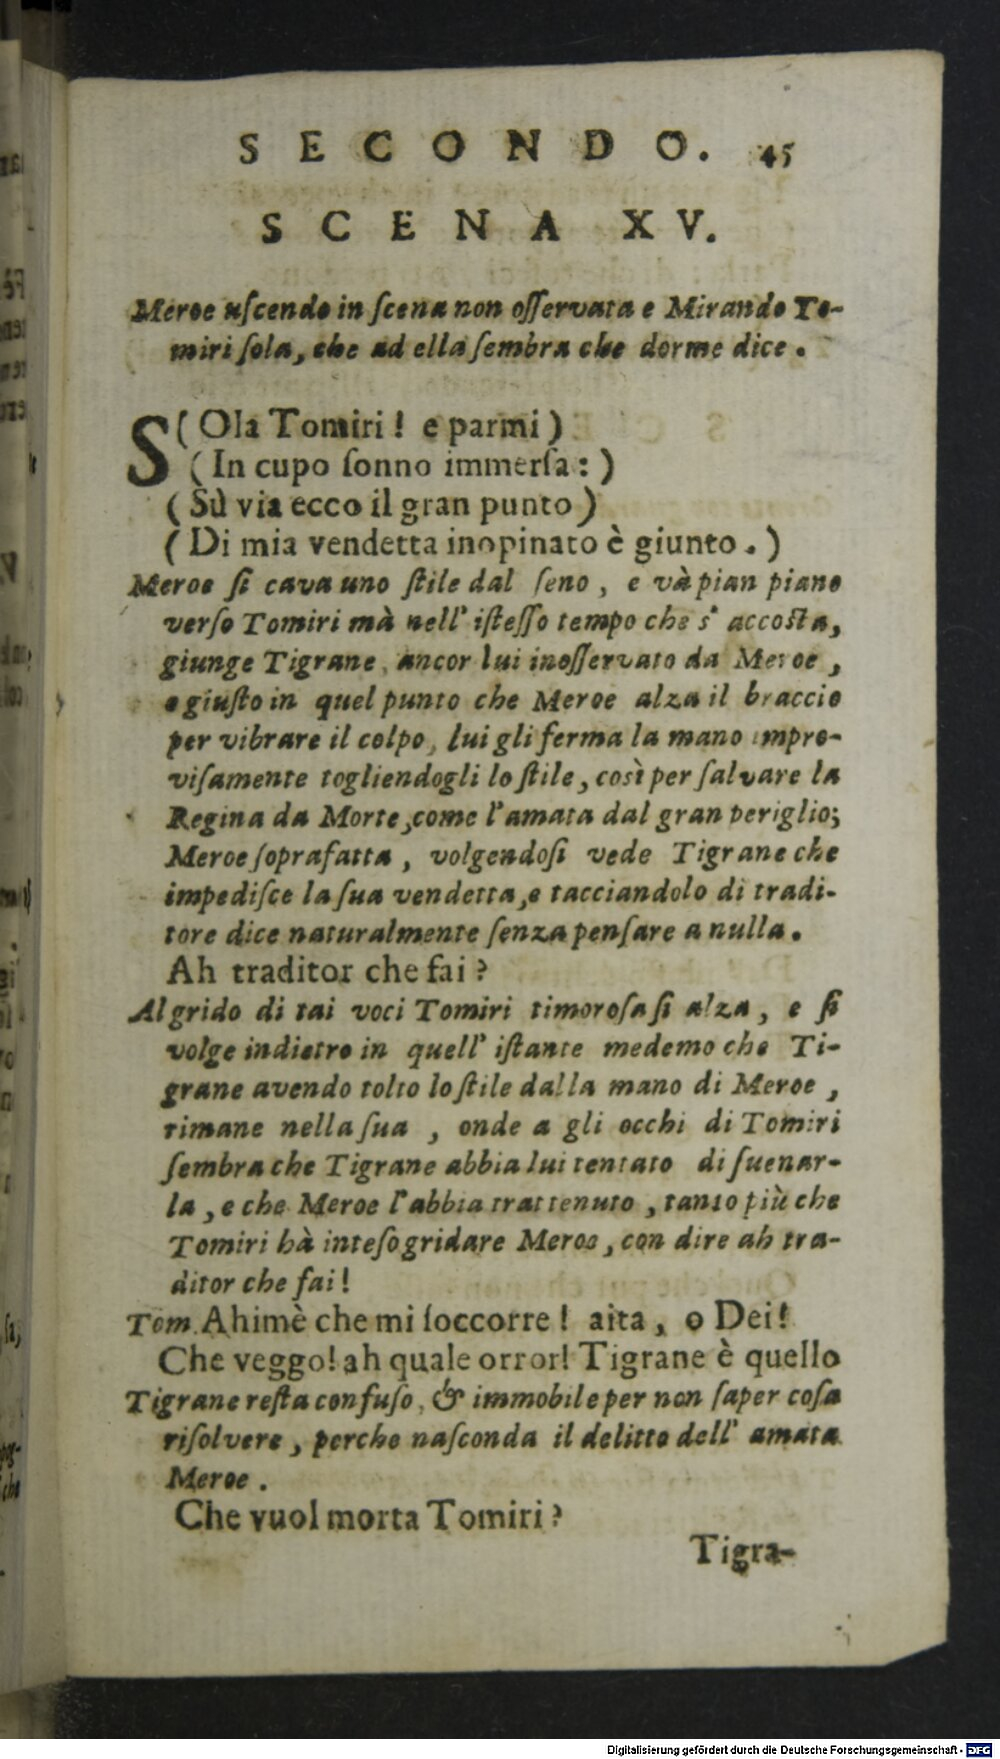 SECONDO. 45
SCENA XV.
Meroe uſcendo in ſcena non oſſervata e Mirando To-
miri ſola, che ad ella ſembra che dorme dice.
S (Ola Tomiri! e parmi)
(In cupo ſonno immerſa:)
(Sù via ecco il gran punto)
(Di mia vendetta inopinato è giunto.)
Meroe ſi cava uno ſtile dal ſeno, e và pian piano
verſo Tomiri mà nell' iſteſſo tempo che s' accoſta,
giunge Tigrane, ancor lui inoſſervato da Meroe,
e giuſto in quel punto che Meroe alza il braccio
per vibrare il colpo, lui gli ferma la mano impro-
viſamente togliendogli lo ſtile, così per ſalvare la
Regina da Morte, come l'amata dal gran periglio;
Meroe ſoprafatta, volgendoſi vede Tigrane che
impediſce la ſua vendetta, e tacciandolo di tradi-
tore dice naturalmente ſenza penſare a nulla.
Ah traditor che fai?
Al grido di tai voci Tomiri timoroſa ſi alza, e ſi
volge indietro in quell' iſtante medemo che Ti-
grane avendo tolto lo ſtile dalla mano di Meroe,
rimane nella ſua, onde a gli occhi di Tomiri
ſembra che Tigrane abbia lui tentato di ſuenar-
la, e che Meroe l'abbia trattenuto, tanto più che
Tomiri hà inteſo gridare Meroe, con dire ah tra-
ditor che fai!
Tom. Ahimè che mi ſoccorre! aita, o Dei!
Che veggo! ah quale orror! Tigrane è quello
Tigrane reſta confuſo, & immobile per non ſaper coſa
riſolvere, perche naſconda il delitto dell' amata
Meroe.
Che vuol morta Tomiri?
Tigra-
Digitalisierung gefördert durch die Deutsche Forschungsgemeinschaft - DFG